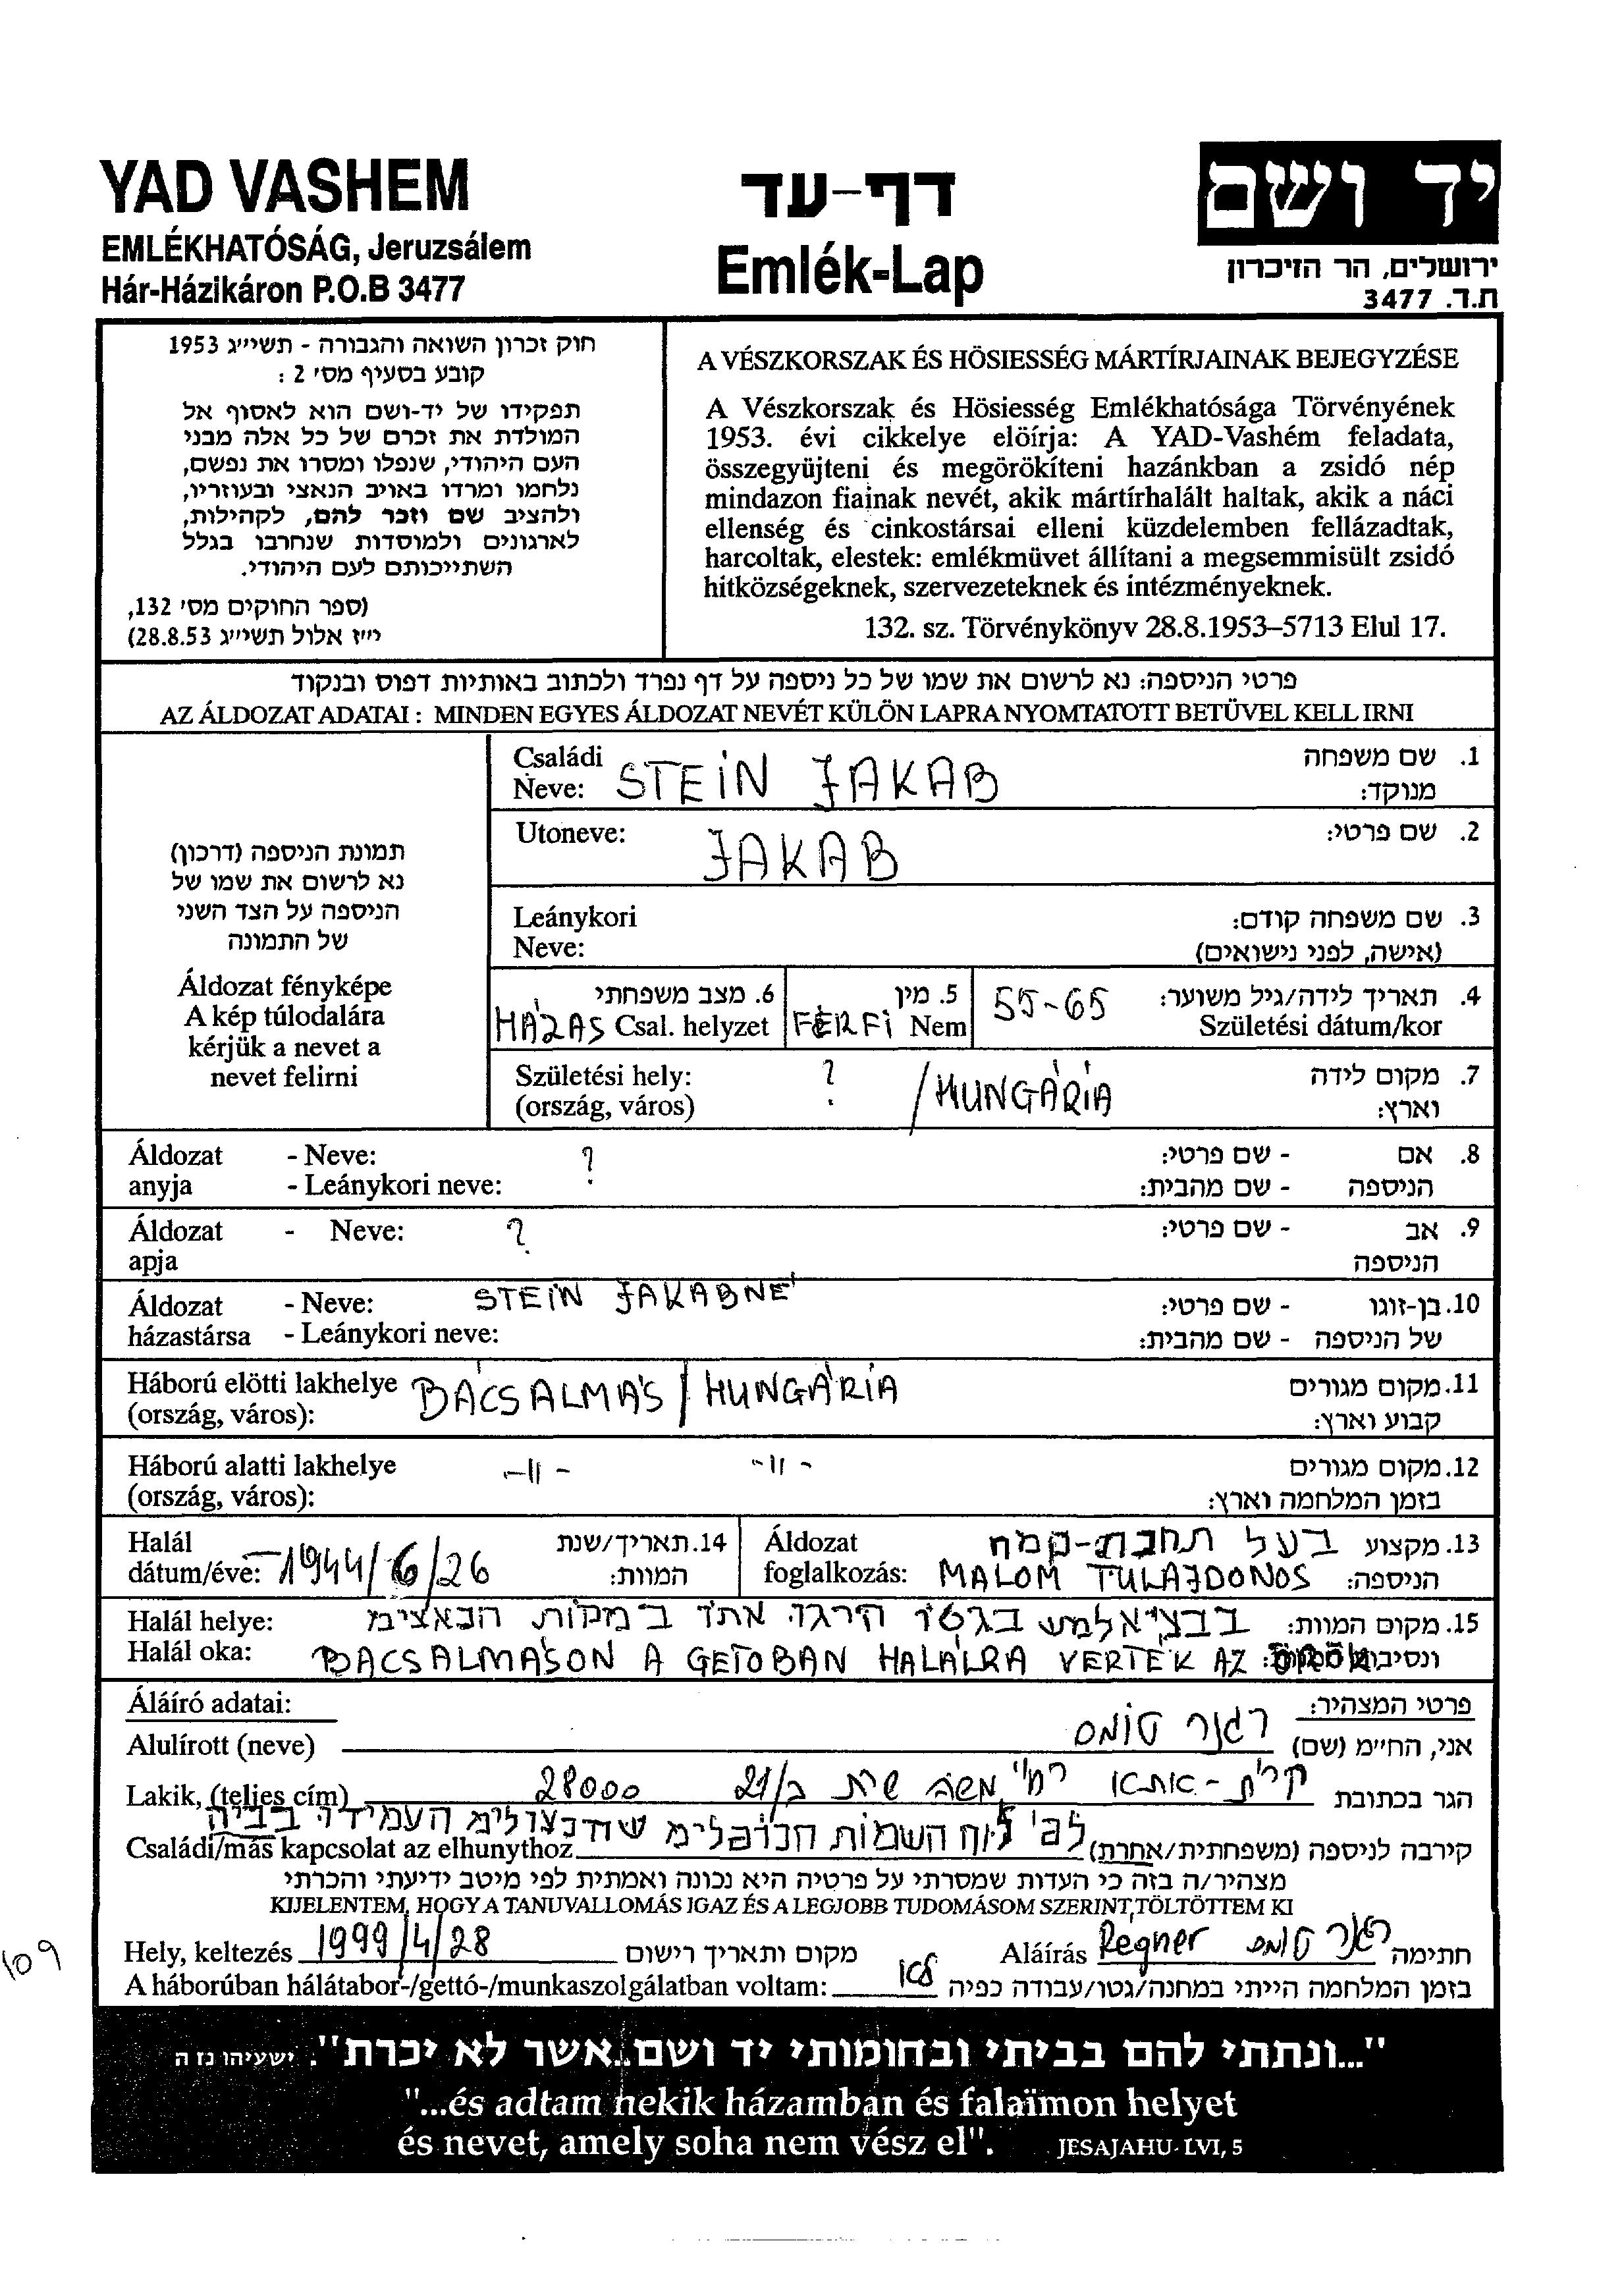 YAD VASHEM
EMLÉKHATÓSÁG, Jeruzsálem
Hár-Házikáron P.O.B 3477
דף-עד
Emlék-Lap
יד ושם
ירושלים, הר הזיכרון
ת.ד. 3477
חוק זכרון השואה והגבורה - תשי״ג 1953
קובע בסעיף מס׳ 2 :
תפקידו של יד-ושם הוא לאסוף אל
המולדת את זכרם של כל אלה מבני
העם היהודי, שנפלו ומסרו את נפשם,
נלחמו ומרדו באויב הנאצי ובעוזריו,
ולהציב שם וזכר להם, לקהילות,
לארגונים ולמוסדות שנחרבו בגלל
השתייכותם לעם היהודי.
(ספר החוקים מס׳ 132,
י״ז אלול תשי״ג 28.8.53)
A VÉSZKORSZAK ÉS HÖSIESSÉG MÁRTÍRJAINAK BEJEGYZÉSE
A Vészkorszak és Hösiesség Emlékhatósága Törvényének
1953. évi cikkelye elöírja: A YAD-Vashém feladata,
összegyüjteni és megörökíteni hazánkban a zsidó nép
mindazon fiainak nevét, akik mártírhalált haltak, akik a náci
ellenség és cinkostársai elleni küzdelemben fellázadtak,
harcoltak, elestek: emlékmüvet állítani a megsemmisült zsidó
hitközségeknek, szervezeteknek és intézményeknek.
132. sz. Törvénykönyv 28.8.1953–5713 Elul 17.
פרטי הניספה: נא לרשום את שמו של כל ניספה על דף נפרד ולכתוב באותיות דפוס ובנקוד
AZ ÁLDOZAT ADATAI : MINDEN EGYES ÁLDOZAT NEVÉT KÜLÖN LAPRA NYOMTATOTT BETÜVEL KELL IRNI
תמונת הניספה (דרכון)
נא לרשום את שמו של
הניספה על הצד השני
של התמונה
Áldozat fényképe
A kép túlodalára
kérjük a nevet a
nevet felirni
Családi
Neve: STEIN JAKAB
1. שם משפחה
מנוקד:
Utoneve: JAKAB
2. שם פרטי:
Leánykori
Neve:
3. שם משפחה קודם:
(אישה, לפני נישואים)
6. מצב משפחתי
HÁZAS Csal. helyzet
5. מין
FÉRFI Nem
55-65
4. תאריך לידה/גיל משוער:
Születési dátum/kor
Születési hely: ? / HUNGÁRIA
(ország, város)
7. מקום לידה
וארץ:
Áldozat - Neve: ?
anyja - Leánykori neve:
8. אם - שם פרטי:
הניספה - שם מהבית:
Áldozat - Neve: ?
apja
9. אב - שם פרטי:
הניספה
Áldozat - Neve: STEIN JAKABNÉ
házastársa - Leánykori neve:
10. בן-זוגו - שם פרטי:
של הניספה - שם מהבית:
Háború elötti lakhelye BÁCSALMÁS / HUNGÁRIA
(ország, város):
11. מקום מגורים
קבוע וארץ:
Háború alatti lakhelye -11- -11-
(ország, város):
12. מקום מגורים
בזמן המלחמה וארץ:
Halál
dátum/éve: 1944/6/26
14. תאריך/שנת
המוות:
Áldozat
foglalkozás: MALOM TULAJDONOS
13. מקצוע בעל תחנת-קמח
הניספה:
Halál helye:
Halál oka:
15. מקום המוות: בגטו הרגו אותו במכות הנאצים
BÁCSALMÁSON A GETOBAN HALÁLRA VERTÉK AZ ŐRÖK
Áláíró adatai:
פרטי המצהיר:
Alulírott (neve)
אני, החי״מ (שם) רגנר תומס
Lakik, (teljes cím)
הגר בכתובת קרית-אתא רח׳ משה שרת 21/ב 28000
Családi/más kapcsolat az elhunythoz
קירבה לניספה (משפחתית/אחרת) לפי לוח השמות
מצהיר/ה בזה כי העדות שמסרתי על פרטיה היא נכונה ואמתית לפי מיטב ידיעתי והכרתי
KIJELENTEM, HOGY A TANUVALLOMÁS IGAZ ÉS A LEGJOBB TUDOMÁSOM SZERINT TÖLTÖTTEM KI
Hely, keltezés 1999/4/28 מקום ותאריך רישום
Aláírás Regner רגנר תומס חתימה
A háborúban hálátabor-/gettó-/munkaszolgálatban voltam: לא בזמן המלחמה הייתי במחנה/גטו/עבודה כפיה
109
"...ונתתי להם בביתי ובחומותי יד ושם...אשר לא יכרת". ישעיהו נו ה
"...és adtam nekik házamban és falaïmon helyet
és nevet, amely soha nem vész el". JESAJAHU- LVI, 5